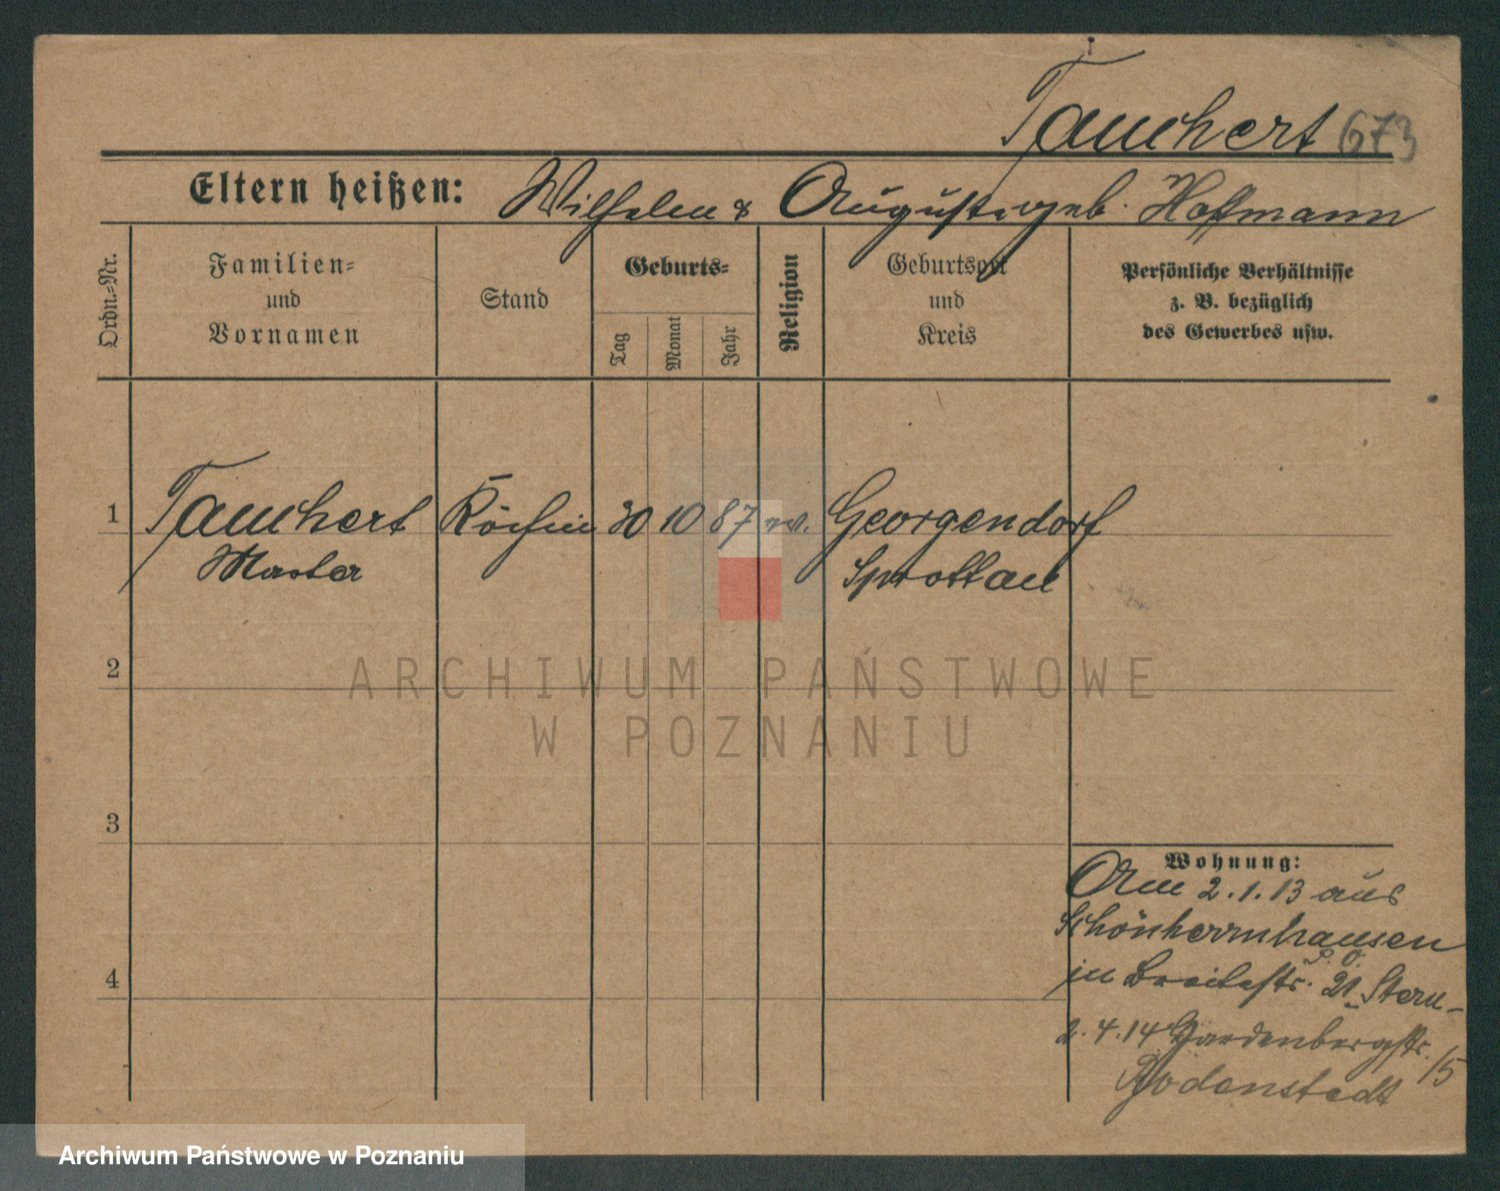 Tauchert 673
Eltern heißen: Wilhelm & Auguste geb. Hoffmann
Ordn.-Nr.
Familien-
und
Vornamen
Stand
Geburts-
Tag
Monat
Jahr
Religion
Geburtsort
und
Kreis
Persönliche Verhältnisse
z. B. bezüglich
des Gewerbes usw.
1 Tauchert Köchin 30 10 87 ev. Georgendorf
Martha Sprottau
2
ARCHIWUM PAŃSTWOWE
W POZNANIU
3
Wohnung:
Am 2.1.13 aus
Schönherrnhausen
P. O.
in Breitestr. 21 Stern-
2.4.14 Hardenbergstr. 15
Bodenstedt
4
Archiwum Państwowe w Poznaniu